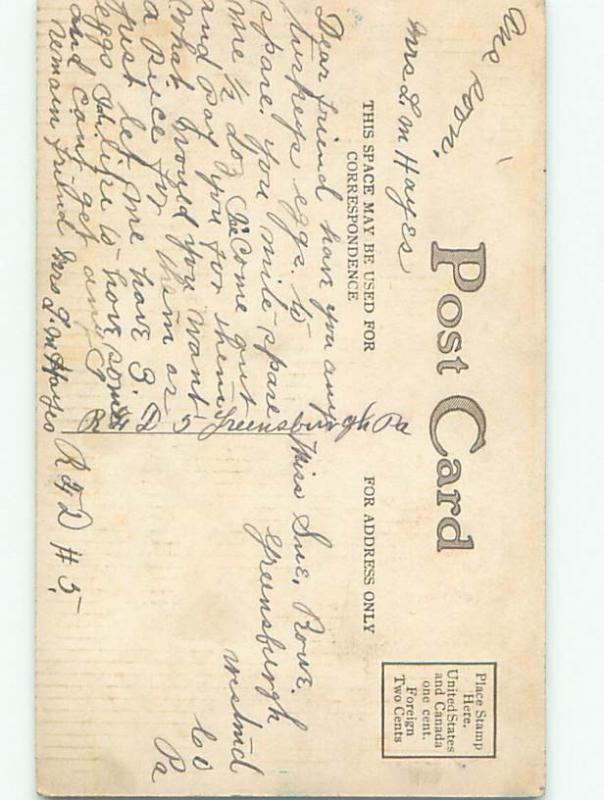 Ans soon.
Mrs L. M Hayes
Post Card
THIS SPACE MAY BE USED FOR
CORRESPONDENCE
FOR ADDRESS ONLY
Place Stamp
Here.
United States
and Canada
one cent.
Foreign
Two Cents
Dear friend have you any
turkeys eggs. to
spare. you mite spare
me ½ doz Ile come out
and pay you for them
What would you want
a piece for them or
just let me have 3
eggs Ide like to have some
and cant get any
remain friend Mrs L. M Hayes R F D # 5.
R F D 5 Greensburgh Pa
Miss Sue. Rowe.
Greensburgh
Westmd
Co
Pa